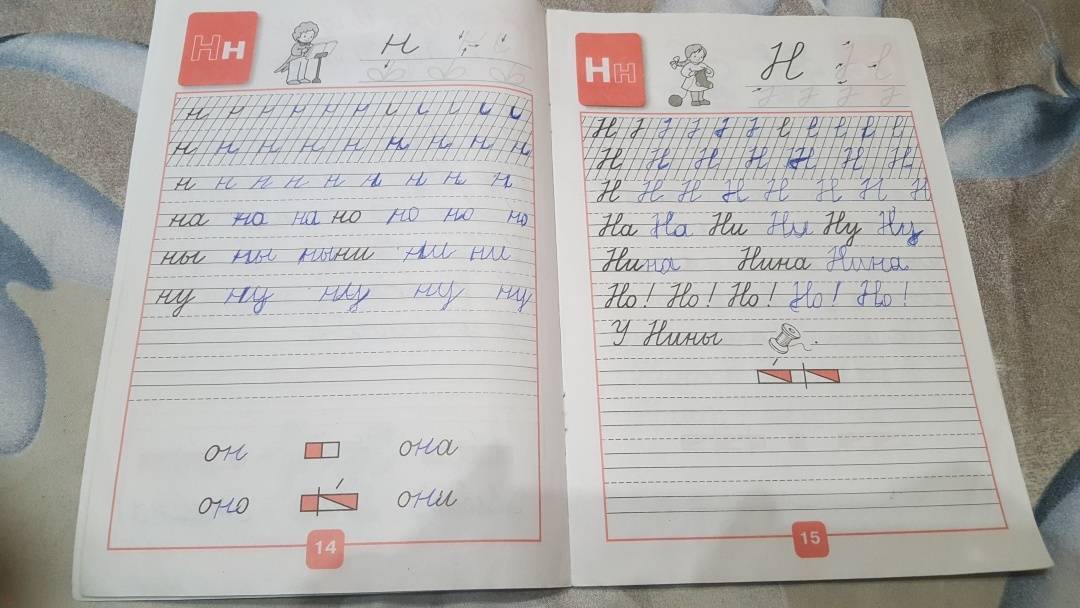 Нн
н н
н н н н н н
н н н н н н н н н
н н н н н н н н н
на на на но но но но
ны ны ны ни ни ни
ну ну ну ну ну
он она
оно они
14
Нн
Н
Н
Н Н Н Н Н Н Н
Н Н Н Н Н Н Н Н
На На Ни Ни Ну Ну
Нина Нина Нина
Но! Но! Но! Но! Но!
У Нины
15